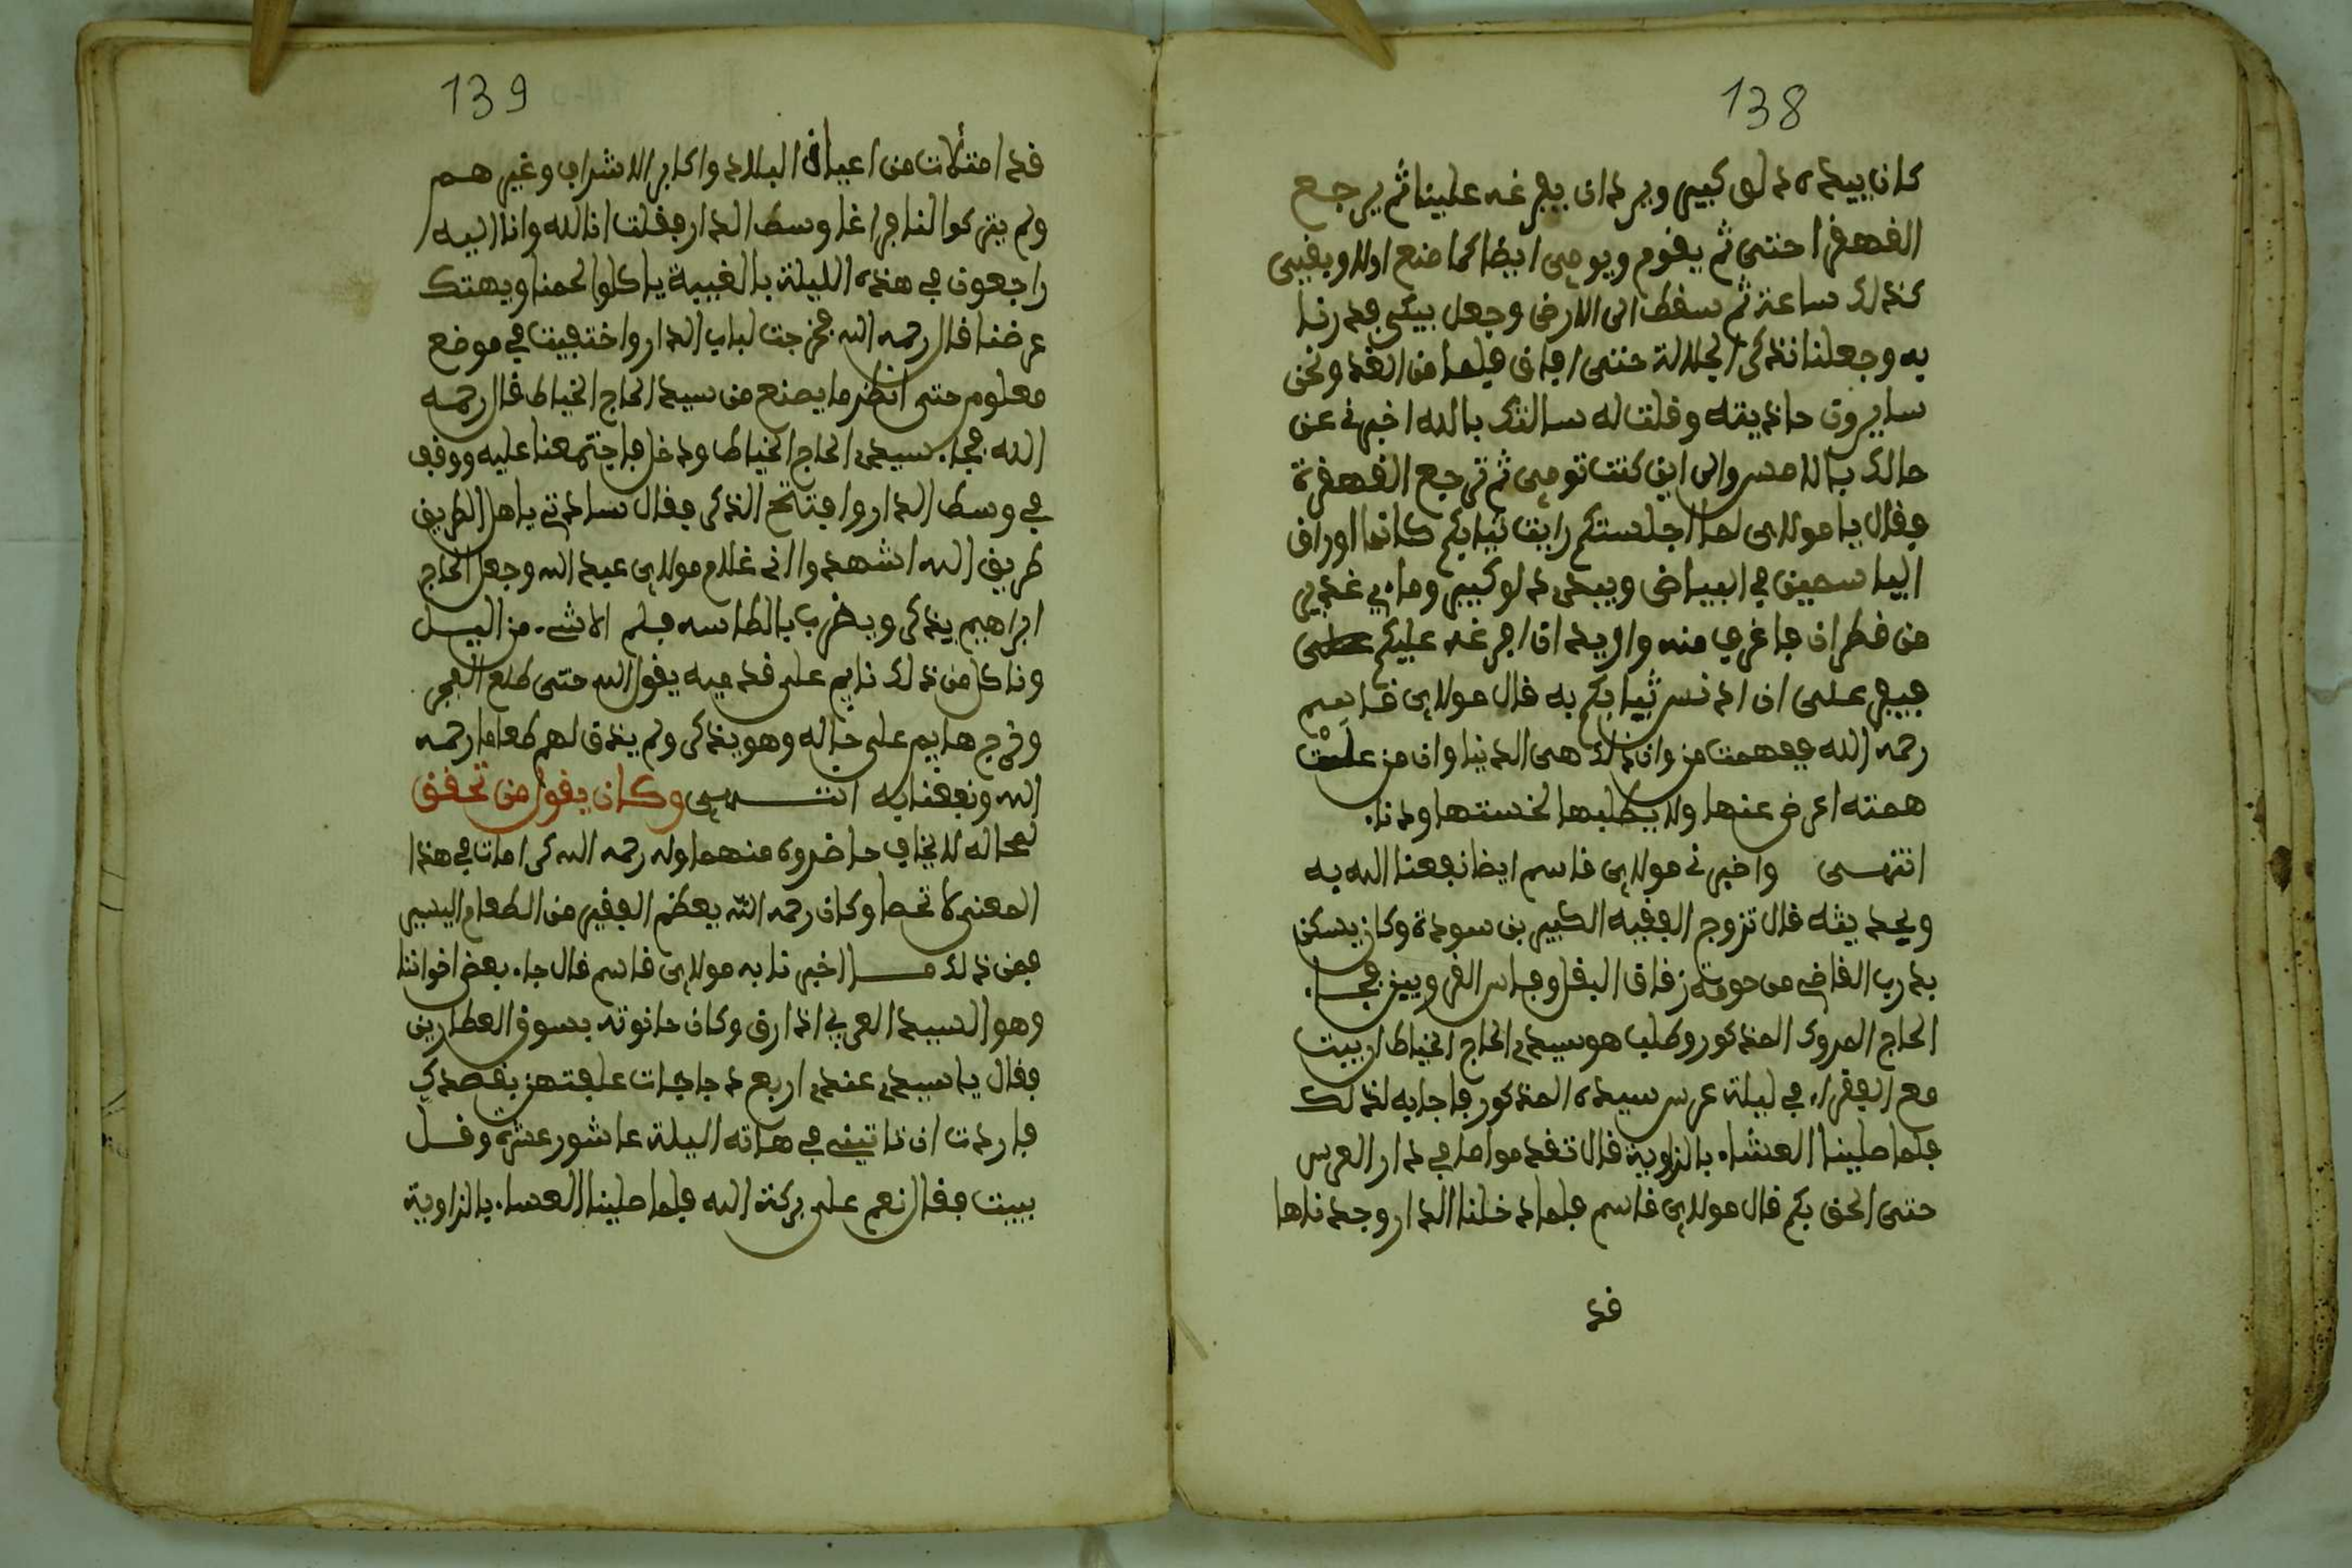 138
كان بيده دلو كبير ويريد ان يفرغه علينا ثم يرجع
القهقرا حتى ثم يقوم ويومى ايضا كما صنع اولا وبقي
كذلك ساعة ثم سقط الى الارض وجعل يبكى فدرنا
به وجعلنا نذكر الجلالة حتى افاق فلما من الغد ونحن
سايرون حاذيته وقلت له سالتك بالله اخبرني عن
حالك بالامس والى اين كنت تومى ثم ترجع القهقرة
فقال يا مولاي لما اجلستكم رايت ثيابكم كانها اوراق
الياسمين في البياض وبيدى دلو كبير وماء غدير
من قطران فاغرف منه واريد ان افرغه عليكم
فيعز على ان ادنس ثيابكم به قال مولاي قاسم
رحمه الله ففهمت من وان ذلك هي الدنيا وان من علت
همته اعرض عنها ولا يطلبها لخستها ودناء
انتهى واخبرني مولاي قاسم ايضا نفعنا الله به
وبحديثه قال تزوج الفقيه الكبير بن سودة وكان يسكن
بدرب القاضي من حومة زقاق البغل وفاس القرويين فجاء
الحاج المروك المذكور وطلب هو سيدي الحاج الخياط ان يبيت
مع الفقراء في ليلة عرس سيده المذكور فاجابه لذلك
فلما صلينا العشاء بالزاوية قال تقدموا امامي لدار العرس
حتى الحق بكم قال مولاي قاسم فلما دخلنا الدار وجدناها
قد
139
قد امتلات من اعيان البلاد واكابر الاشراف وغيرهم
ولم يتركوا لنا فراغا وسط الدار فقلت انا لله وانا اليه
راجعون في هذه الليلة بالغيبة ياكلوا لحمنا ويهتك
عرضنا قال رحمه الله فخرجت لباب الدار واختفيت في موضع
معلوم حتى انظر ما يصنع من سيد الحاج الخياط قال رحمه
الله فجاء سيدي الحاج الخياط ودخل فاجتمعنا عليه ووقف
في وسط الدار وافتتح الذكر فقال ساداتي ياهل الطريق
طريق الله اشهدوا اني غلام مولاي عبد الله وجعل الحاج
ابراهيم يذكر ويضرب بالطاسه فلم الا شيء من اليسل
وناكل من ذلك نايم على قدميه يقول الله حتى طلع الفجر
وخرج هايم على حاله وهو يذكر ولم يذق لهم طعاما رحمه
الله ونفعنا به انتهى وكان يقول من تحقق
لمحاله لا يخاف حاضروه منهما وله رحمه الله كرامات في هذا
المعنى لا تحصا وكان رحمه الله يعظم الفقير من الطعام اليسير
فمن ذلك ما اخبرنا به مولاي قاسم قال جاء بعض اخواننا
وهو السيد العربي اذارق وكان حانوته بسوق العطارين
فقال يا سيدي عندي اربع دجاجات علفتهن بقصدك
فاردت ان تاتيني في هاته الليلة عاشور عشره وقل
يبيت فقال نعم على بركة الله فلما صلينا العساء بالزاوية